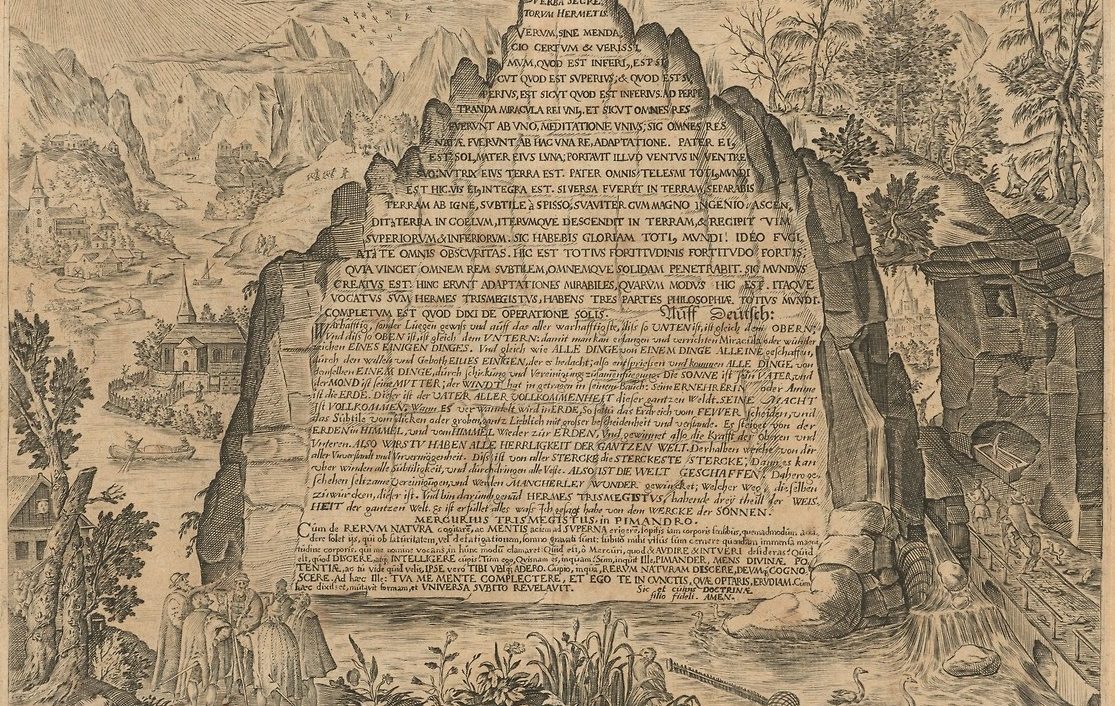 VERBA SECRE,
TORVM HERMETIS.
VERVM, SINE MENDA,
CIO CERTVM & VERISSI,
MVM, QVOD EST INFERI, EST SI,
CVT QVOD EST SVPERIVS, & QVOD EST SV,
PERIVS, EST SICVT QVOD EST INFERIVS. AD PERPE
TRANDA MIRACVLA REI VNI, ET SICVT OMNES RES
FVERVNT AB VNO, MEDITATIONE VNIVS, SIC OMNES RES
NATÆ FVERVNT AB HAC VNA RE, ADAPTATIONE. PATER EI,
EST SOL, MATER EIVS LVNA; PORTAVIT ILLVD VENTVS IN VENTRE
SVO; NVTRIX EIVS TERRA EST. PATER OMNIS TELESMI TOTI, MVNDI
EST HIC. VIS EI, INTEGRA EST. SI VERSA FVERIT IN TERRAM, SEPARABIS
TERRAM AB IGNE, SVBTILE à SPISSO, SVAVITER CVM MAGNO INGENIO. ASCEN,
DIT à TERRA IN COELVM, ITERVMQVE DESCENDIT IN TERRAM, & RECIPIT VIM
SVPERIORVM & INFERIORVM. SIC HABEBIS GLORIAM TOTI, MVNDI. IDEO FVGI,
AT à TE OMNIS OBSCVRITAS. HIC EST TOTIVS FORTITVDINIS FORTITVDO FORTIS,
QVIA VINCET OMNEM REM SVBTILEM, OMNEMQVE SOLIDAM PENETRABIT. SIC MVNDVS
CREATVS EST. HINC ERVNT ADAPTATIONES MIRABILES, QVARVM MODVS HIC EST. ITAQVE
VOCATVS SVM HERMES TRISMEGISTVS, HABENS TRES PARTES PHILOSOPHIÆ TOTIVS MVNDI.
COMPLETVM EST QVOD DIXI DE OPERATIONE SOLIS. Auff Deutsch:
Warhafftig, sonder Liegen gewiss und auff das aller warhafftigste, diss so VNTEN ist, ist gleich dem OBERN:
Vnd diss so OBEN ist, ist gleich dem VNTERN: damit man kan erlangen und verrichten Miracula oder wunder
zeichen EINES EINIGEN DINGES. Vnd gleich wie ALLE DINGE von EINEM DINGE ALLEINE geschaffen,
durch den willen und Geboth EINES EINIGEN, der es bedacht; also entspriessen und kommen ALLE DINGE von
demselben EINEM DINGE, durch schickung und Vereinigung zusammenfuegung. Die SONNE ist sein VATER, und
der MOND ist seine MVTTER; der WINDT hat in getragen in seinem Bauch: Seine ERNEHRERIN oder Amme
ist die ERDE. Dieser ist der VATER ALLER VOLLKOMMENHEIT dieser gantzen Weldt. SEINE MACHT
Ist VOLLKOMMEN; Wann ES verwandelt wird in ERDE, So soltu das Erdreich vom FEWER scheiden, und
das Subtile vom dicken oder groben, gantz Lieblich mit grosser bescheidenheit und verstande. Es steiget von der
ERDEN in HIMMEL, und von HIMMEL Wieder zur ERDEN, Vnd gewinnet also die Krafft der obern und
Vnteren. ALSO WIRSTV HABEN ALLE HERRLIGKEIT DER GANTZEN WELT. Derhalben weiche von dir
aller Vnverstandt und Vnvermögenheit. Diss ist von aller STERCKE die STERCKESTE STERCKE, Dann es kan
uber winden alle Subtiligkeit, und durchdringen alle Veste. ALSO IST DIE WELT GESCHAFFEN. Dahero ge,
schehen seltzame Vereinigungen, und Werden MANCHERLEY WUNDER gewürcket; Welcher Weg, die selben
zuwürcken, dieser ist. Vnd bin darumb genand HERMES TRISMEGISTUS, habende drey theill der WEIS,
HEIT der gantzen Welt. Es ist erfüllet alles wass Ich gesagt habe von dem WERCKE der SONNEN.
MERCURIUS TRISMEGISTUS, in PIMANDRO.
Cum de RERUM NATURA cogitarē, ac MENTIS aciem ad SUPERNA erigerē, sopitis iam corporis sensibus, quemadmodum acci,
dere solet iis, qui ob saturitatem, vel defatigationem, somno gravati sunt: subitò mihi visus sum cernere quendam immensa magni
tudine corporis, qui me nomine vocans, in hunc modū clamaret: Quid est, ô Mercuri, quod & AUDIRE & INTUERI desideras? Quid
est, quod DISCERE, atq; INTELLIGERE cupis? Tum ego, Quisnam es, inquam? Sum, inquit Ille, PIMANDER, MENS DIVINÆ PO,
TENTIÆ, ac tu vide quid velis, IPSE vero TIBI VBIq; ADERO. Cupio, inquā, RERUM NATURAM DISCERE, DEUMq; COGNO,
SCERE. Ad hæc Ille: TUA ME MENTE COMPLECTERE, ET EGO TE IN CUNCTIS, QUÆ OPTARIS, ERUDIAM. Cum
hæc dixisset, mutavit formam, et UNIVERSA SUBITO REVELAVIT. Sic et cuivis DOCTRINÆ
filio fideli. AMEN.